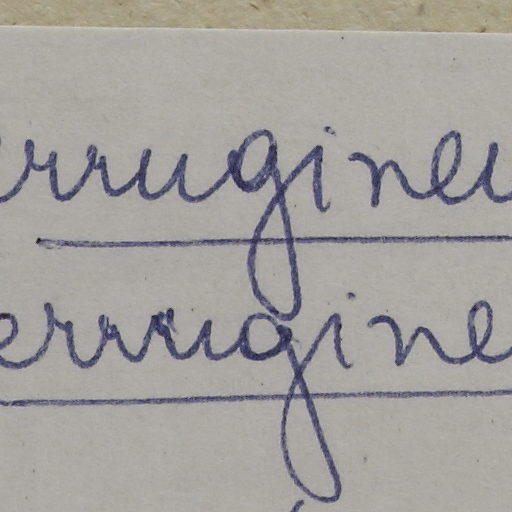 errugineu
errugine